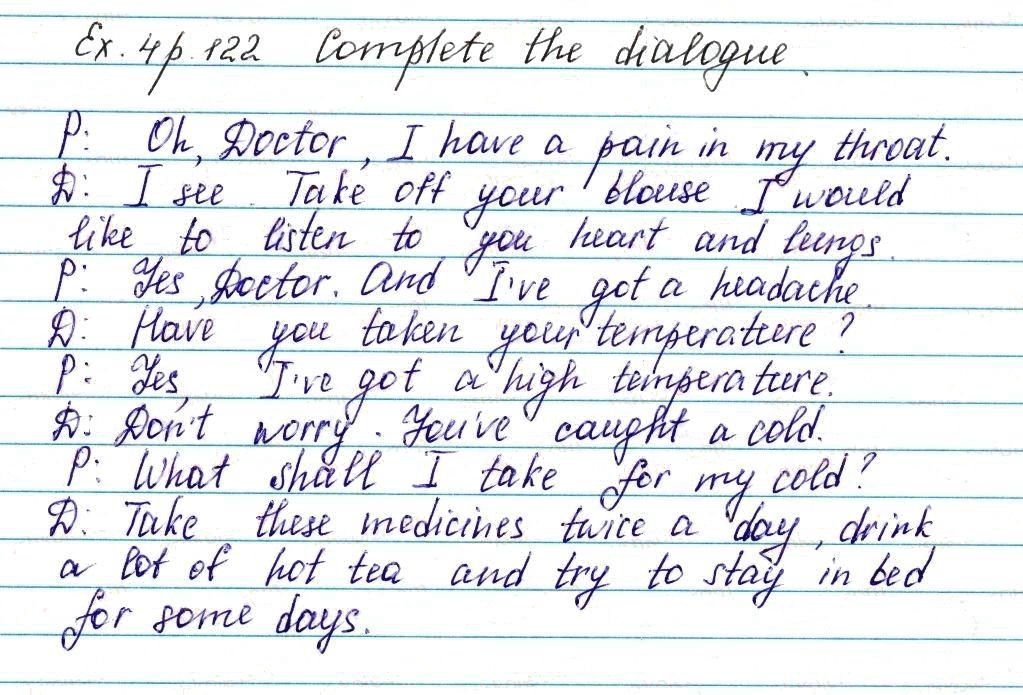 Ex. 4 p. 122 Complete the dialogue.
P: Oh, Doctor, I have a pain in my throat.
D: I see. Take off your blouse. I would
like to listen to you heart and lungs.
P: Yes, Doctor. And I've got a headache.
D: Have you taken your temperature?
P: Yes, I've got a high temperature.
D: Don't worry. You've caught a cold.
P: What shall I take for my cold?
D: Take these medicines twice a day, drink
a lot of hot tea and try to stay in bed
for some days.